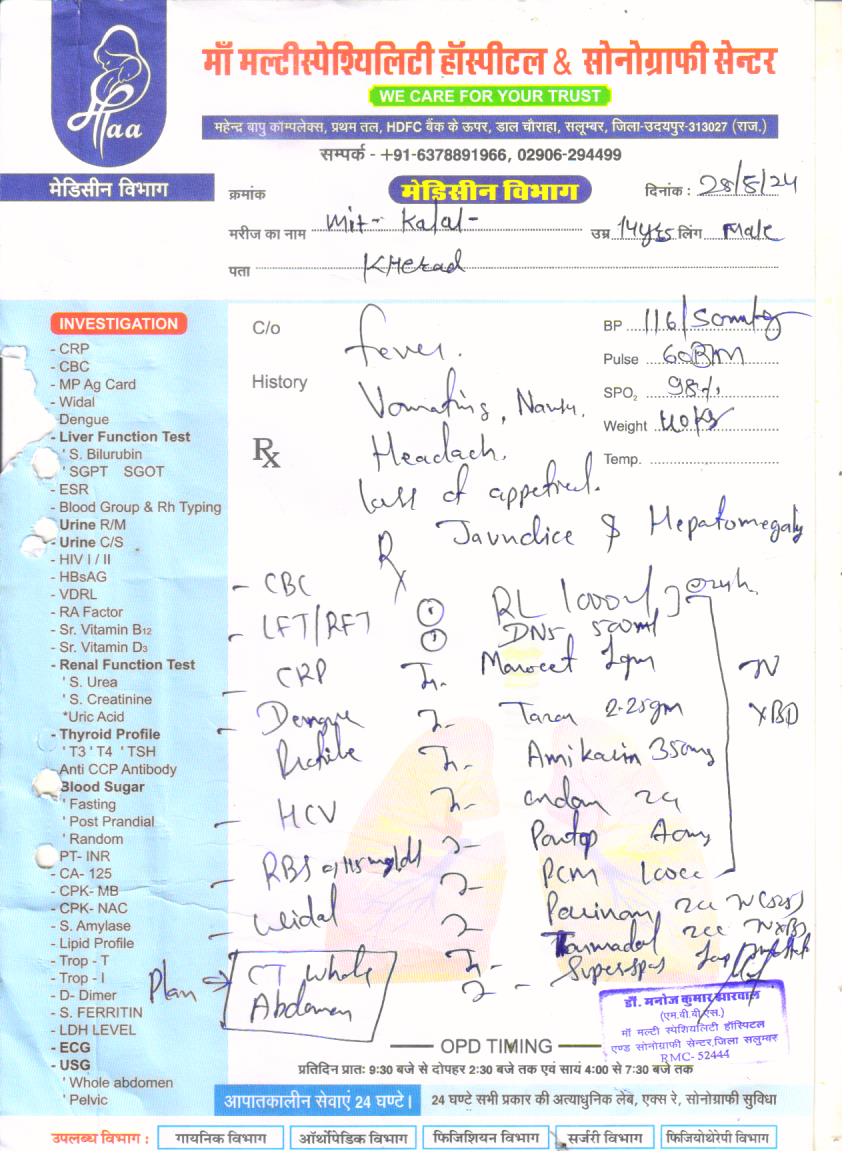 माँ मल्टीस्पेश्यिलिटी हॉस्पीटल & सोनोग्राफी सेन्टर
WE CARE FOR YOUR TRUST
माँaa
महेन्द्र बापु कॉम्पलेक्स, प्रथम तल, HDFC बैंक के ऊपर, डाल चौराहा, सलूम्बर, जिला-उदयपुर-313027 (राज.)
सम्पर्क - +91-6378891966, 02906-294499
मेडिसीन विभाग
क्रमांक मेडिसीन विभाग दिनांक : 28/5/24
मरीज का नाम Mit Kalal उम्र 14yrs लिंग Male
पता Kherad
INVESTIGATION
- CRP
- CBC
- MP Ag Card
- Widal
Dengue
- Liver Function Test
' S. Bilurubin
' SGPT SGOT
- ESR
- Blood Group & Rh Typing
Urine R/M
- Urine C/S
- HIV I / II
- HBsAG
- VDRL
- RA Factor
- Sr. Vitamin B12
- Sr. Vitamin D3
- Renal Function Test
' S. Urea
' S. Creatinine
*Uric Acid
- Thyroid Profile
' T3 ' T4 ' TSH
Anti CCP Antibody
Blood Sugar
' Fasting
' Post Prandial
' Random
PT- INR
- CA- 125
- CPK- MB
- CPK- NAC
- S. Amylase
- Lipid Profile
- Trop - T
- Trop - I
- D- Dimer
- S. FERRITIN
- LDH LEVEL
- ECG
- USG
' Whole abdomen
' Pelvic
C/o fever.
History Vomating,
Rx Headach.
loss of appetieal.
Jaundice & Hepatomegaly
BP 116/80mmHg
Pulse 60BPM
SPO2 98%
Weight 40kg
Temp.
Rx
- CBC
- LFT/RFT
- CRP
- Dengue
- HCV
- RBS 115mg/dl
- Widal
Plan → CT Whole
Abdomen
① RL 1000ml
① DNS 500ml
Monocet 1gm
2.25gm
Amikacin 350mg
Pantop 40mg
PCM 100cc
IV
x BD
डॉ. मनोज कुमार
(एम.बी.बी.एस.)
माँ मल्टी स्पेशियलिटी हॉस्पिटल
एण्ड सोनोग्राफी सेन्टर,जिला सलुम्बर
RMC- 52444
OPD TIMING
प्रतिदिन प्रातः 9:30 बजे से दोपहर 2:30 बजे तक एवं सायं 4:00 से 7:30 बजे तक
आपातकालीन सेवाएं 24 घण्टे। 24 घण्टे सभी प्रकार की अत्याधुनिक लेब, एक्स रे, सोनोग्राफी सुविधा
उपलब्ध विभाग : गायनिक विभाग ऑर्थोपेडिक विभाग फिजिशियन विभाग सर्जरी विभाग फिजियोथेरेपी विभाग